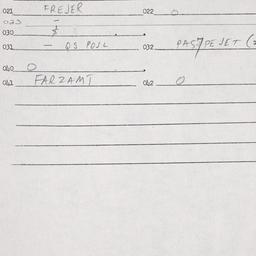 021 FREJER 022 O
023 -
030
031 - QS POJL 032 PAS7PEJET (
060 O
061 FARZAMT 062 O